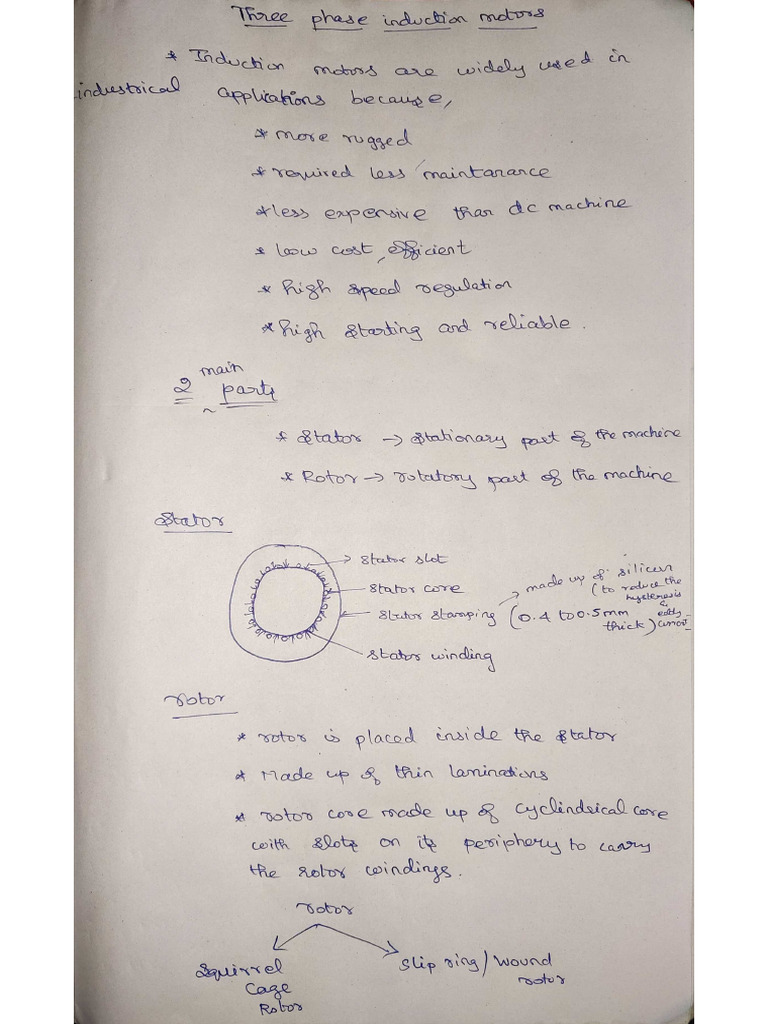 Three phase induction motors
* Induction motors are widely used in
industrical applications because,
* more rugged
* required less maintanance
* less expensive than dc machine
* low cost, efficient
* high speed regulation
* high starting and reliable.
2 main parts
* Stator → Stationary part of the machine
* Rotor → rotatory part of the machine
Stator
→ Stator slot
Stator core
Stator stamping → made up of silicon
(to reduce the
hysteresis
&
eddy
(0.4 to 0.5mm
thick)
Stator winding
rotor
* rotor is placed inside the stator
* Made up of thin laminations
* rotor core made up of cyclindrical core
with slots on its periphery to carry
the rotor windings.
rotor
Squirrel
Cage
Rotor
Slip ring/Wound
rotor